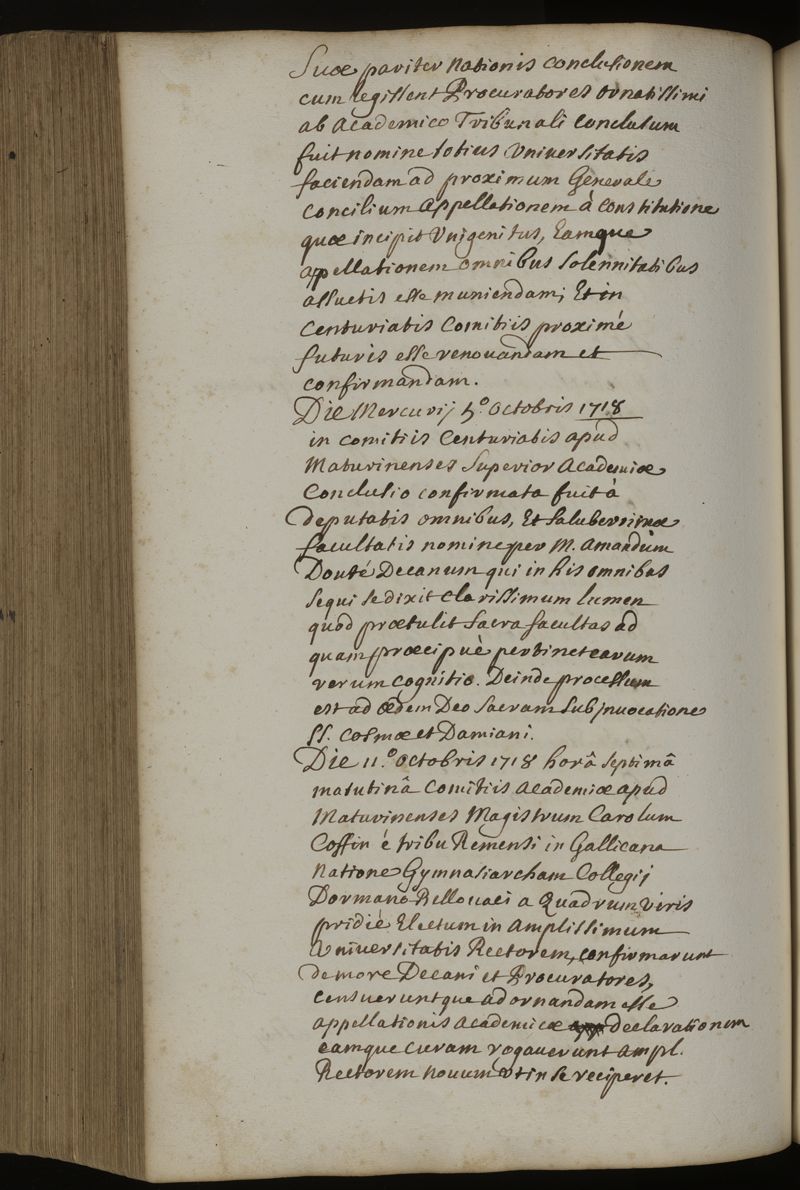 Suæ pariter Nationis Conclusionem
cum legissent Procuratores ornatissimi
ab Academico Tribunali Conclusum
fuit nomine totius Universitatis
faciendam ad proximum Generale
Concilium Appellationem à Constitutione
quæ incipit Vnigenitus, Eamque
appellationem omnibus solennitatibus
assuetis esse muniendam; Et in
Centuriatis Comitiis proximé
futuris esse renouandam et
confirmandam.
Die Mercurij 5.º Octobris 1718
in comitiis Centuriatis apud
Maturinenses Superior Academiæ
Conclusio confirmata fuit à
deputatis omnibus, Et saluberrimæ
facultatis nomine per M. Amandum
Douté Decanum qui in his omnibus
sequi se dixit clarissimum lumen
quod prætulit sacra facultas ad
quam præcipuè pertinet earum
rerum cognitio. Deinde processum
est ad ædem Deo Sacram sub jnuocatione
SS. Cosmæ et Damiani.
Die 11.º Octobris 1718 horâ septimâ
matutinâ Comitiis Academiæ apud
Maturinenses Magistrum Carolum
Coffin é tribu Remensi in Gallicana
Natione Gymnasiarcham Collegij
Dormano Bellouaci a Quadrum viris
pridié Electum in Amplissimum
Vniuersitatis Rectorem, confirmarunt
de more Decani et Procuratores,
Censueruntque adornandam esse
appellationis Academicæ Declarationem
eamque curam rogauerunt Ampl.
Rectorem nouum vt in se reciperet.